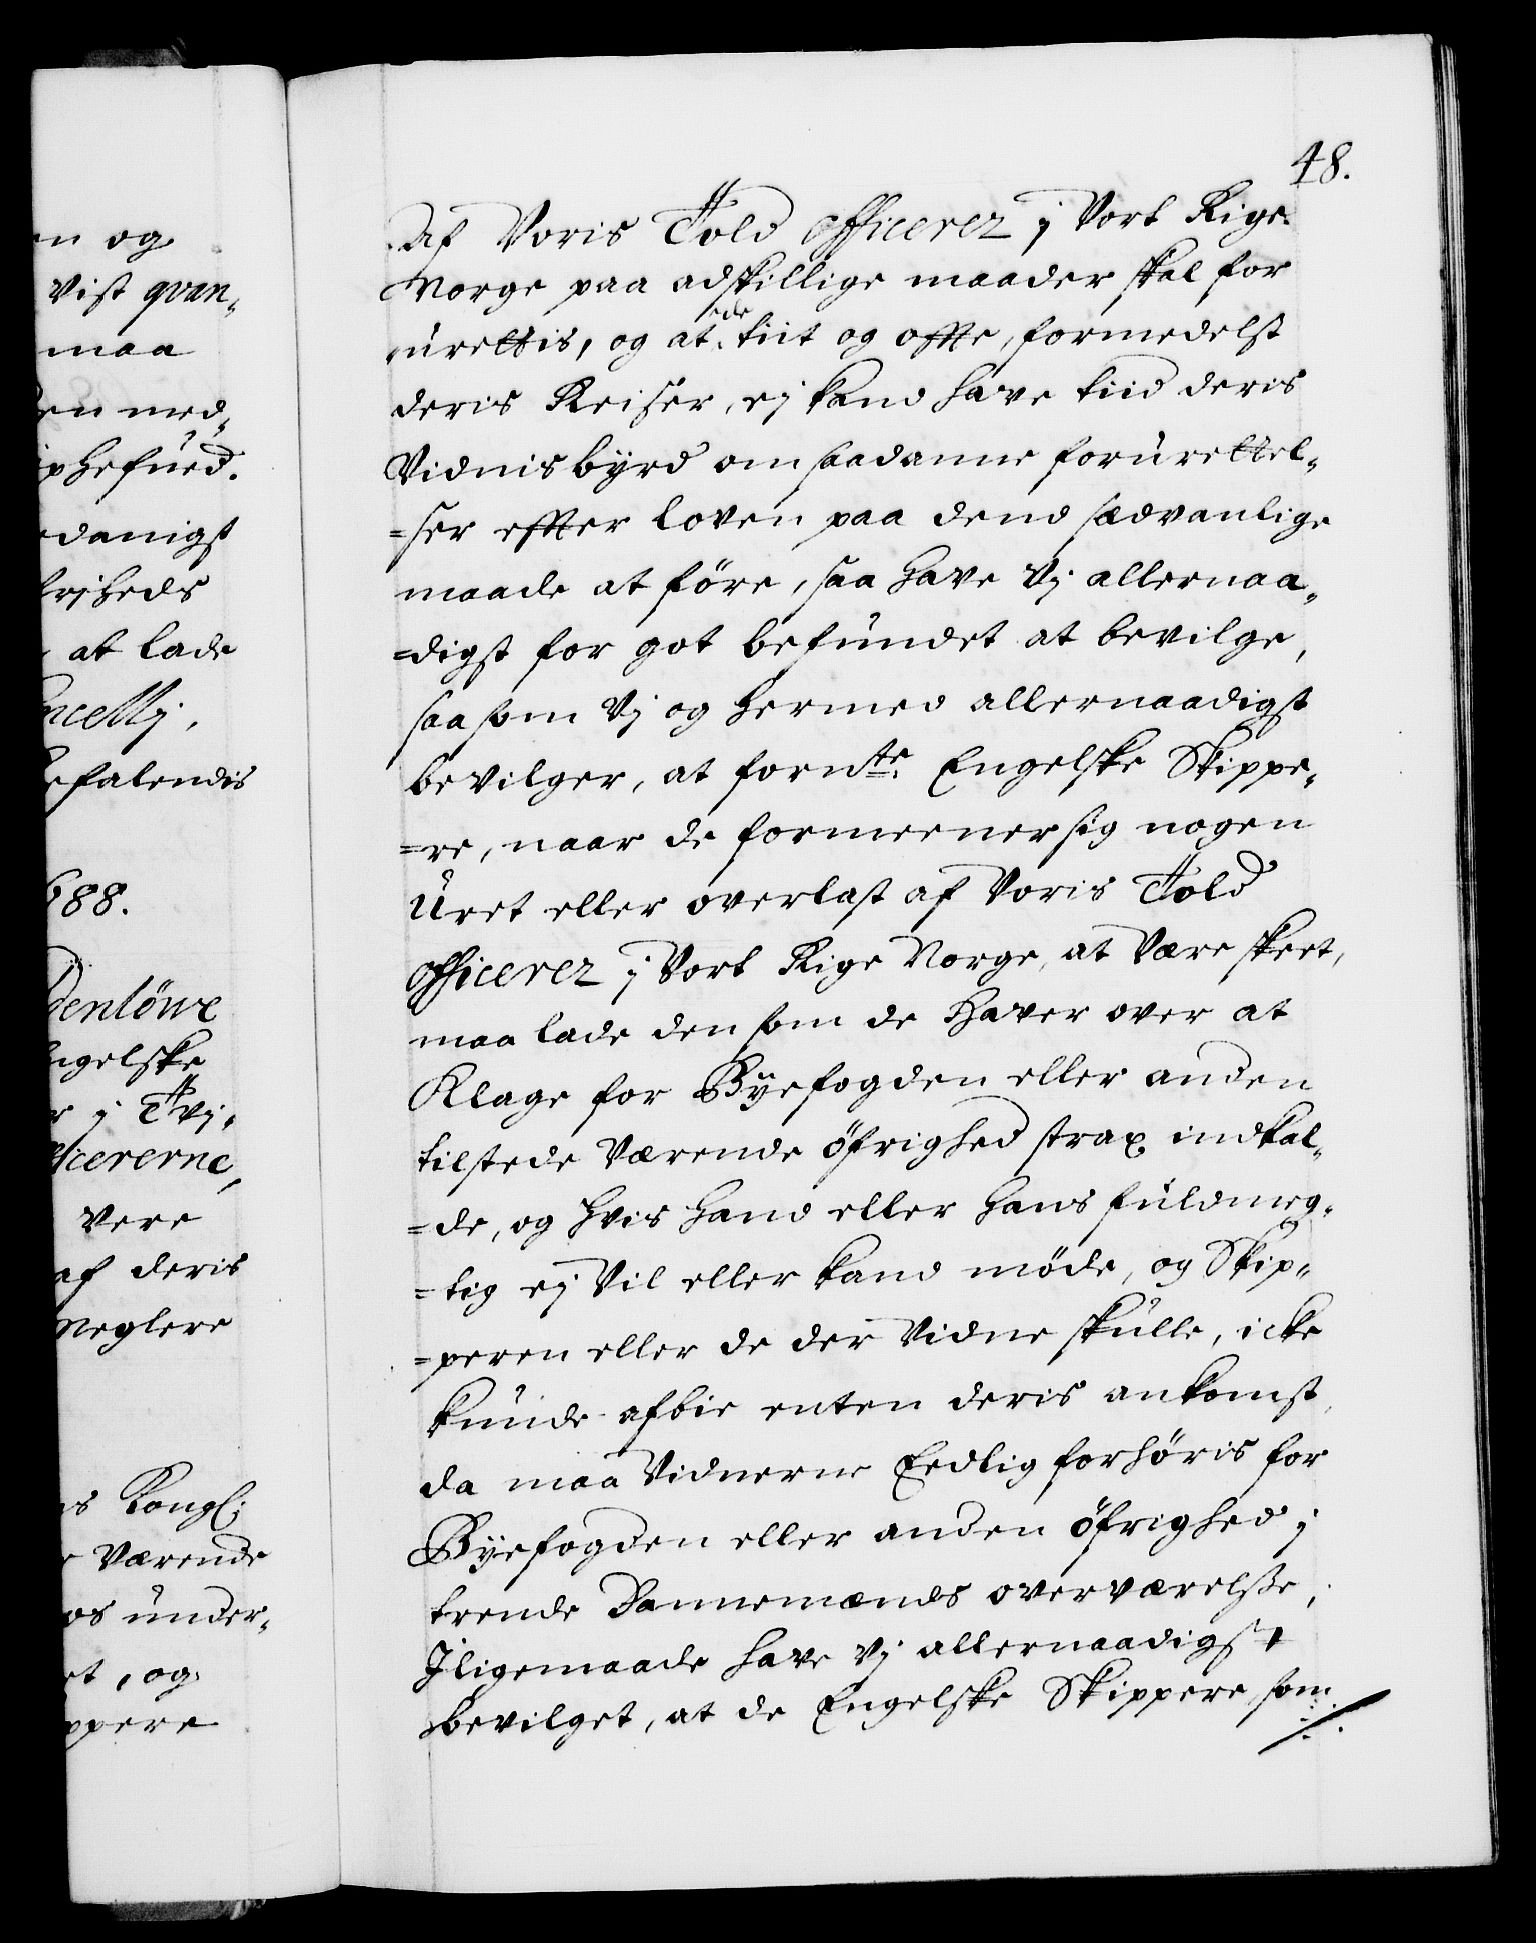 48.
Af Voris Told officerer j Vort Rige
Norge paa adskillige maader skal for
urettis, og at de tiit og offte, formedelst
deris Reiser, ej kand have tiid deris
Vidnisbyrd om saadanne forurettel¬
=ser effter loven paa dend sædvanlige
maade at före, saa have Vj allernaa¬
=digst for got befundet at bevilge,
saa som Vj og hermed allernaadigst
bevilger, at fornte Engelske Skippe¬
=re, naar de formeener sig nogen
Uret eller overlast af Voris Told
officerer j Vort Rige Norge, at Være skeet,
maa lade den som de haver over at
Klage for Byefogden eller anden
tilstede Værende öfrighed strax indkal¬
=de, og hvis hand eller hans fuldmeg¬
=tig ej Vil eller kand möde, og Skip¬
=peren eller de der Vidne skulle, icke
kunde afbie enten deris ankomst,
da maa Vidnerne Eedlig forhöris for
Byefogden eller anden öfrighed j
trende Dannemænds overværelsse,
Jligemaade have Vj allernaadigst
bevilget, at de Engelske Skippere som
n og
vist qvan¬
maa
en med¬
danigst
at lade
ncellj.
efalendis
688.
denlöwe
ngelske
icererne,
vere
af deris
Meglere
s Kongl:
Værende
os under¬
et, og
ppere